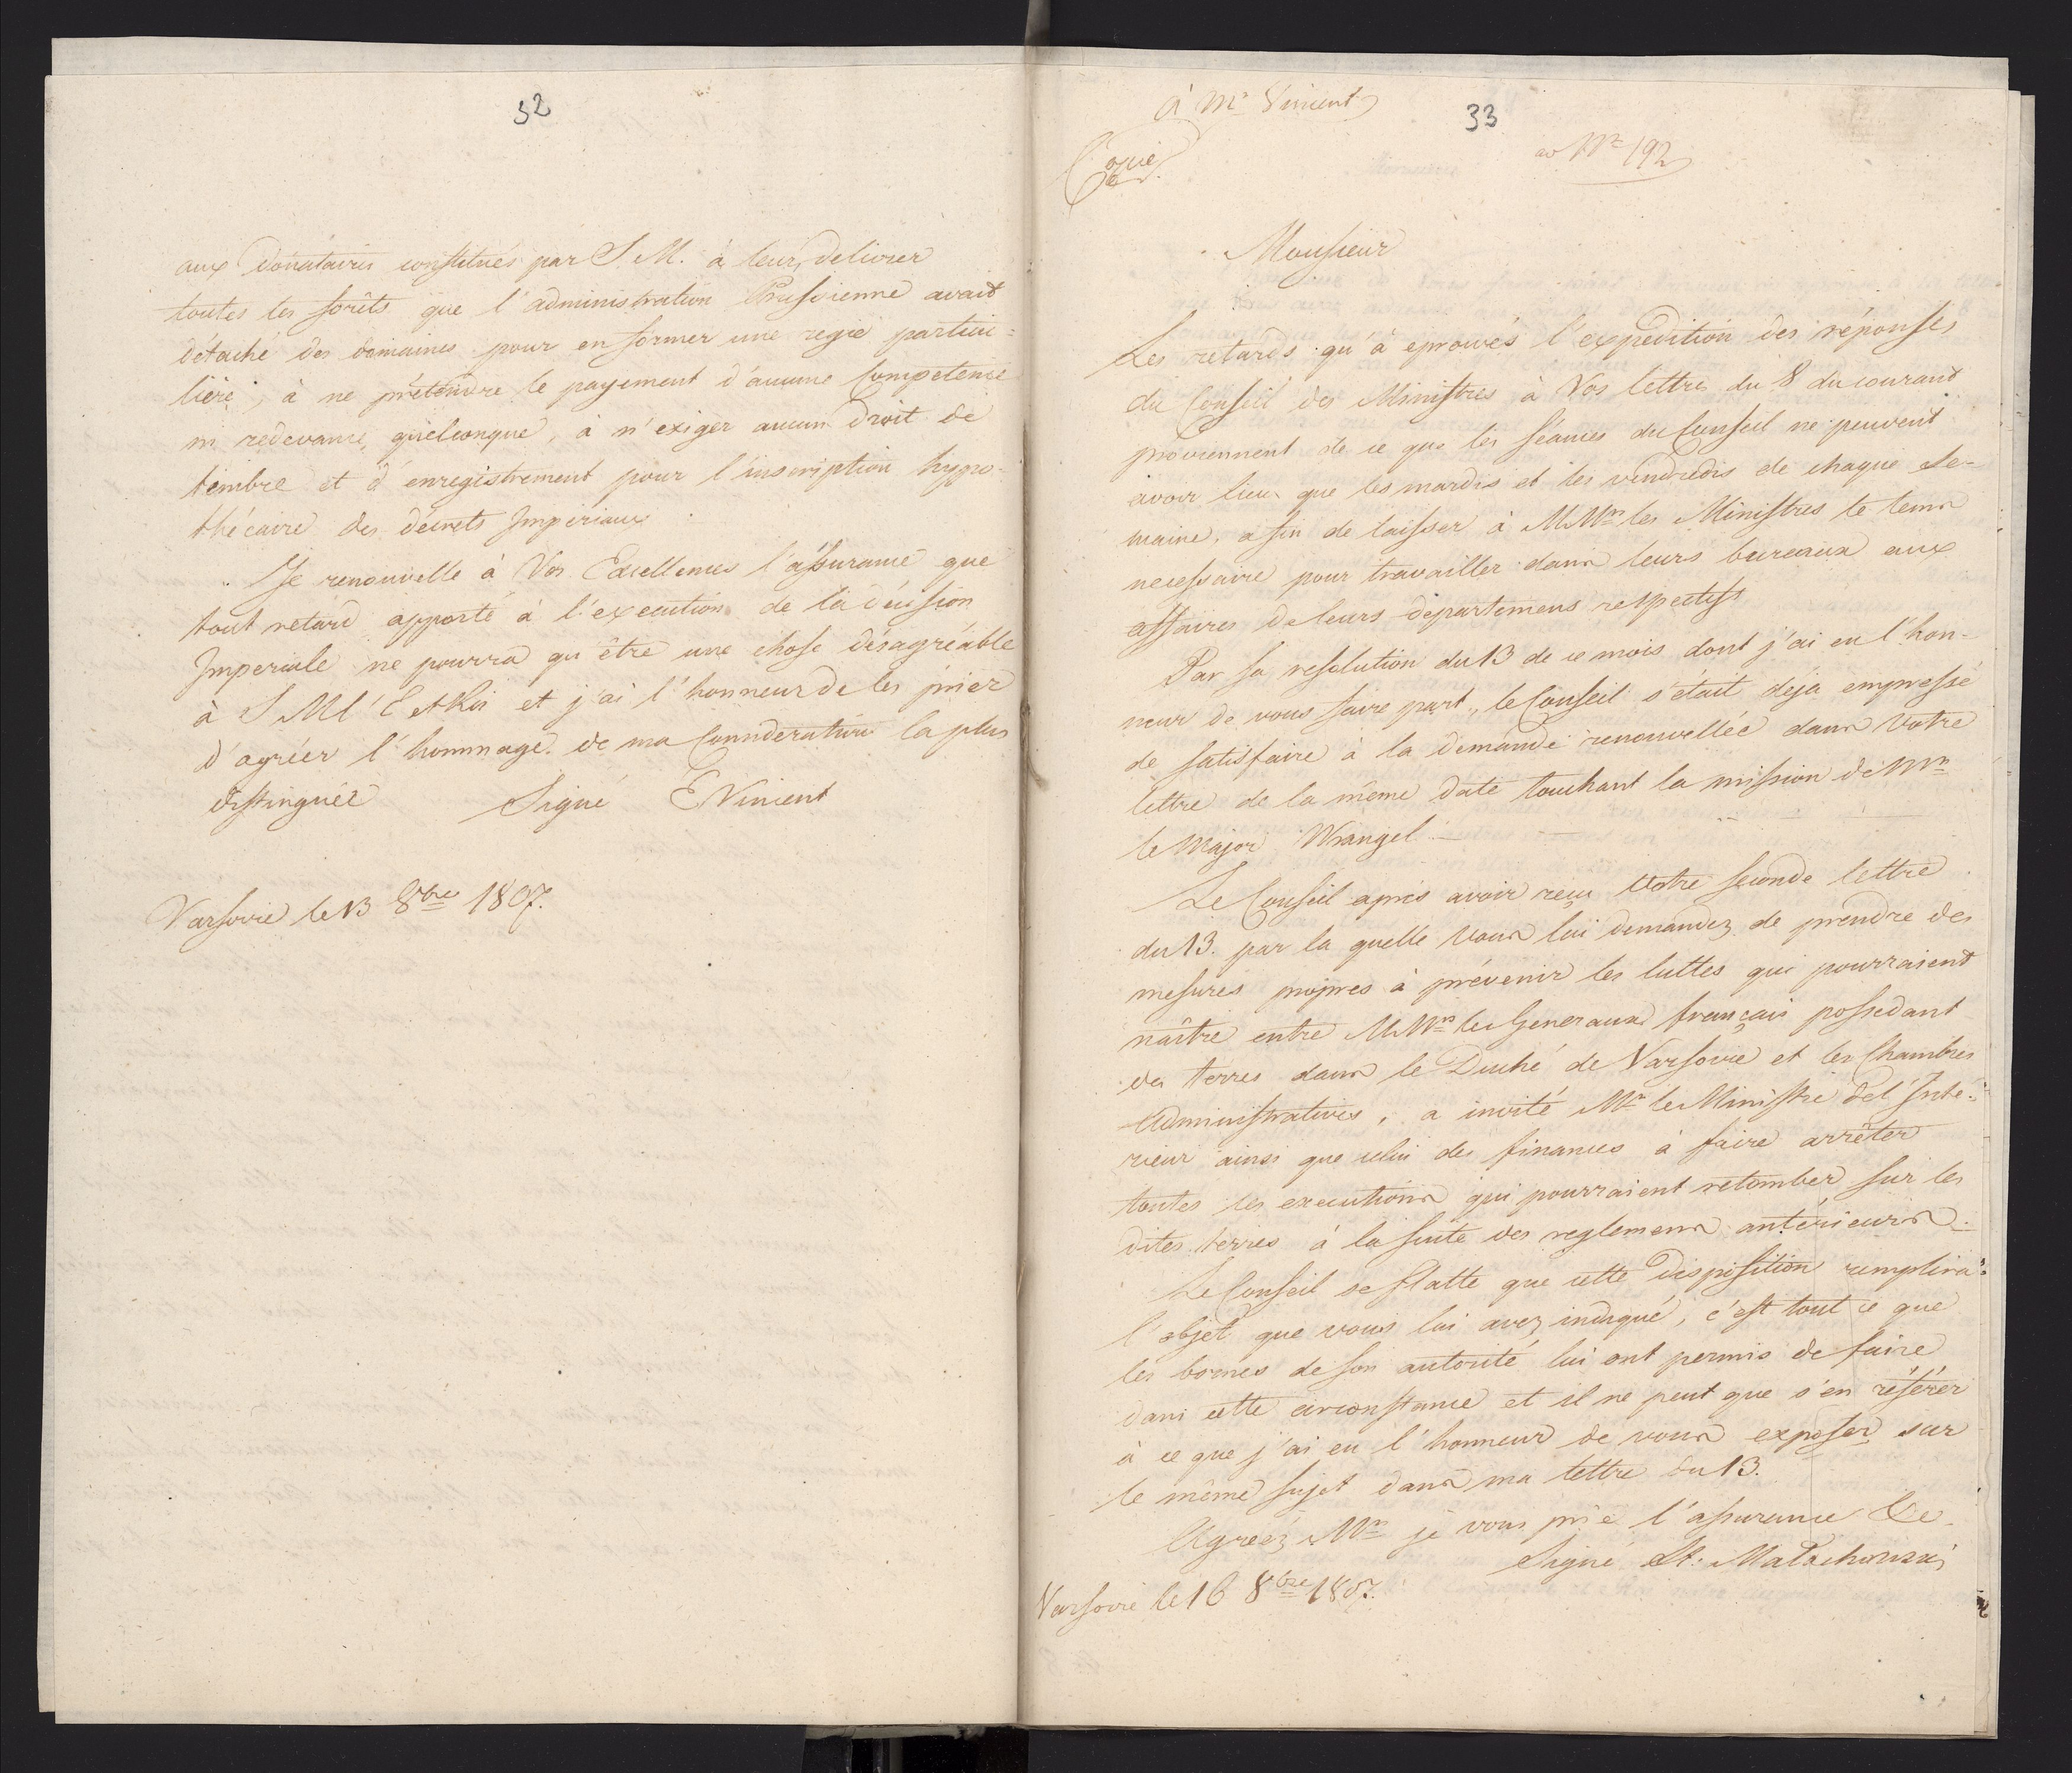 32
aux donataires constitués par S. M. à leur delivrer
toutes les forêts que l'administration Prussienne avait
détaché des domaines pour en former une regie particu=
lière, à ne prétendre le payement d'aucune Competence
ni redevance quelconque, à n'exiger aucun droit de
timbre et d'enregistrement pour l'inscription hypo-
thécaire des décrets Imperiaux
Je renouvelle à Vos Excellences l'assurance que
tout retard apporté à l'execution de la décision
Imperiale ne pourra qu'être une chose désagréable
à S M l'E et Roi et j'ai l'honneur de les prier
d'agréer l'hommage de ma Consideration la plus
distinguée Signé E Vincent
Varsovie le 13 8bre 1807.
à Mr Vincent
33
Copie
ad Nr 192
Monsieur
Les retards qu'à eprouvés l'expedition des réponses
du Conseil des Ministres à Vos lettre du 8 du courant
proviennent de ce que les séances du Conseil ne peuvent
avoir lieu que les mardis et les vendredis de chaque se-
maine, afin de laisser à MMrs les Ministres le tems
necessaire pour travailler dans leurs bureaux aux
affaires de leurs departemens respectifs
Par sa resolution du 13 de ce mois dont j'ai eu l'hon-
neur de vous faire part, le Conseil s'etait déja empressé
de satisfaire à la demande renouvellée dans Votre
lettre de la même date touchant la mission de Mr
le Major Wrangel.
Le Conseil après avoir reçu Votre seconde lettre
du 13. par la quelle Vous lui demandez de prendre des
mesures propres à prévenir les luttes qui pourraient
naître entre MMrs les Generaux français possedant
des terres dans le Duché de Varsovie et les Chambres
Administratives, a invité Mr le Ministre de l'Inté=
rieur ainsi que celui des finances à faire arrêter
toutes les executions qui pourraient retomber sur les
dites terres à la suite des reglemens antérieurs.
Le Conseil se flatte que cette disposition remplira
l'objet que vous lui avez indiqué, c'est tout ce que
les bornes de son autorité lui ont permis de faire
dans cette circonstance et il ne peut que s'en référer
à ce que j'ai eu l'honneur de vous exposer sur
le même sujet dans ma lettre du 13.
Agréez Mr je vous prie l'assurance &c
Signé St: Małachowski
Varsovie le 16 8bre 1807.